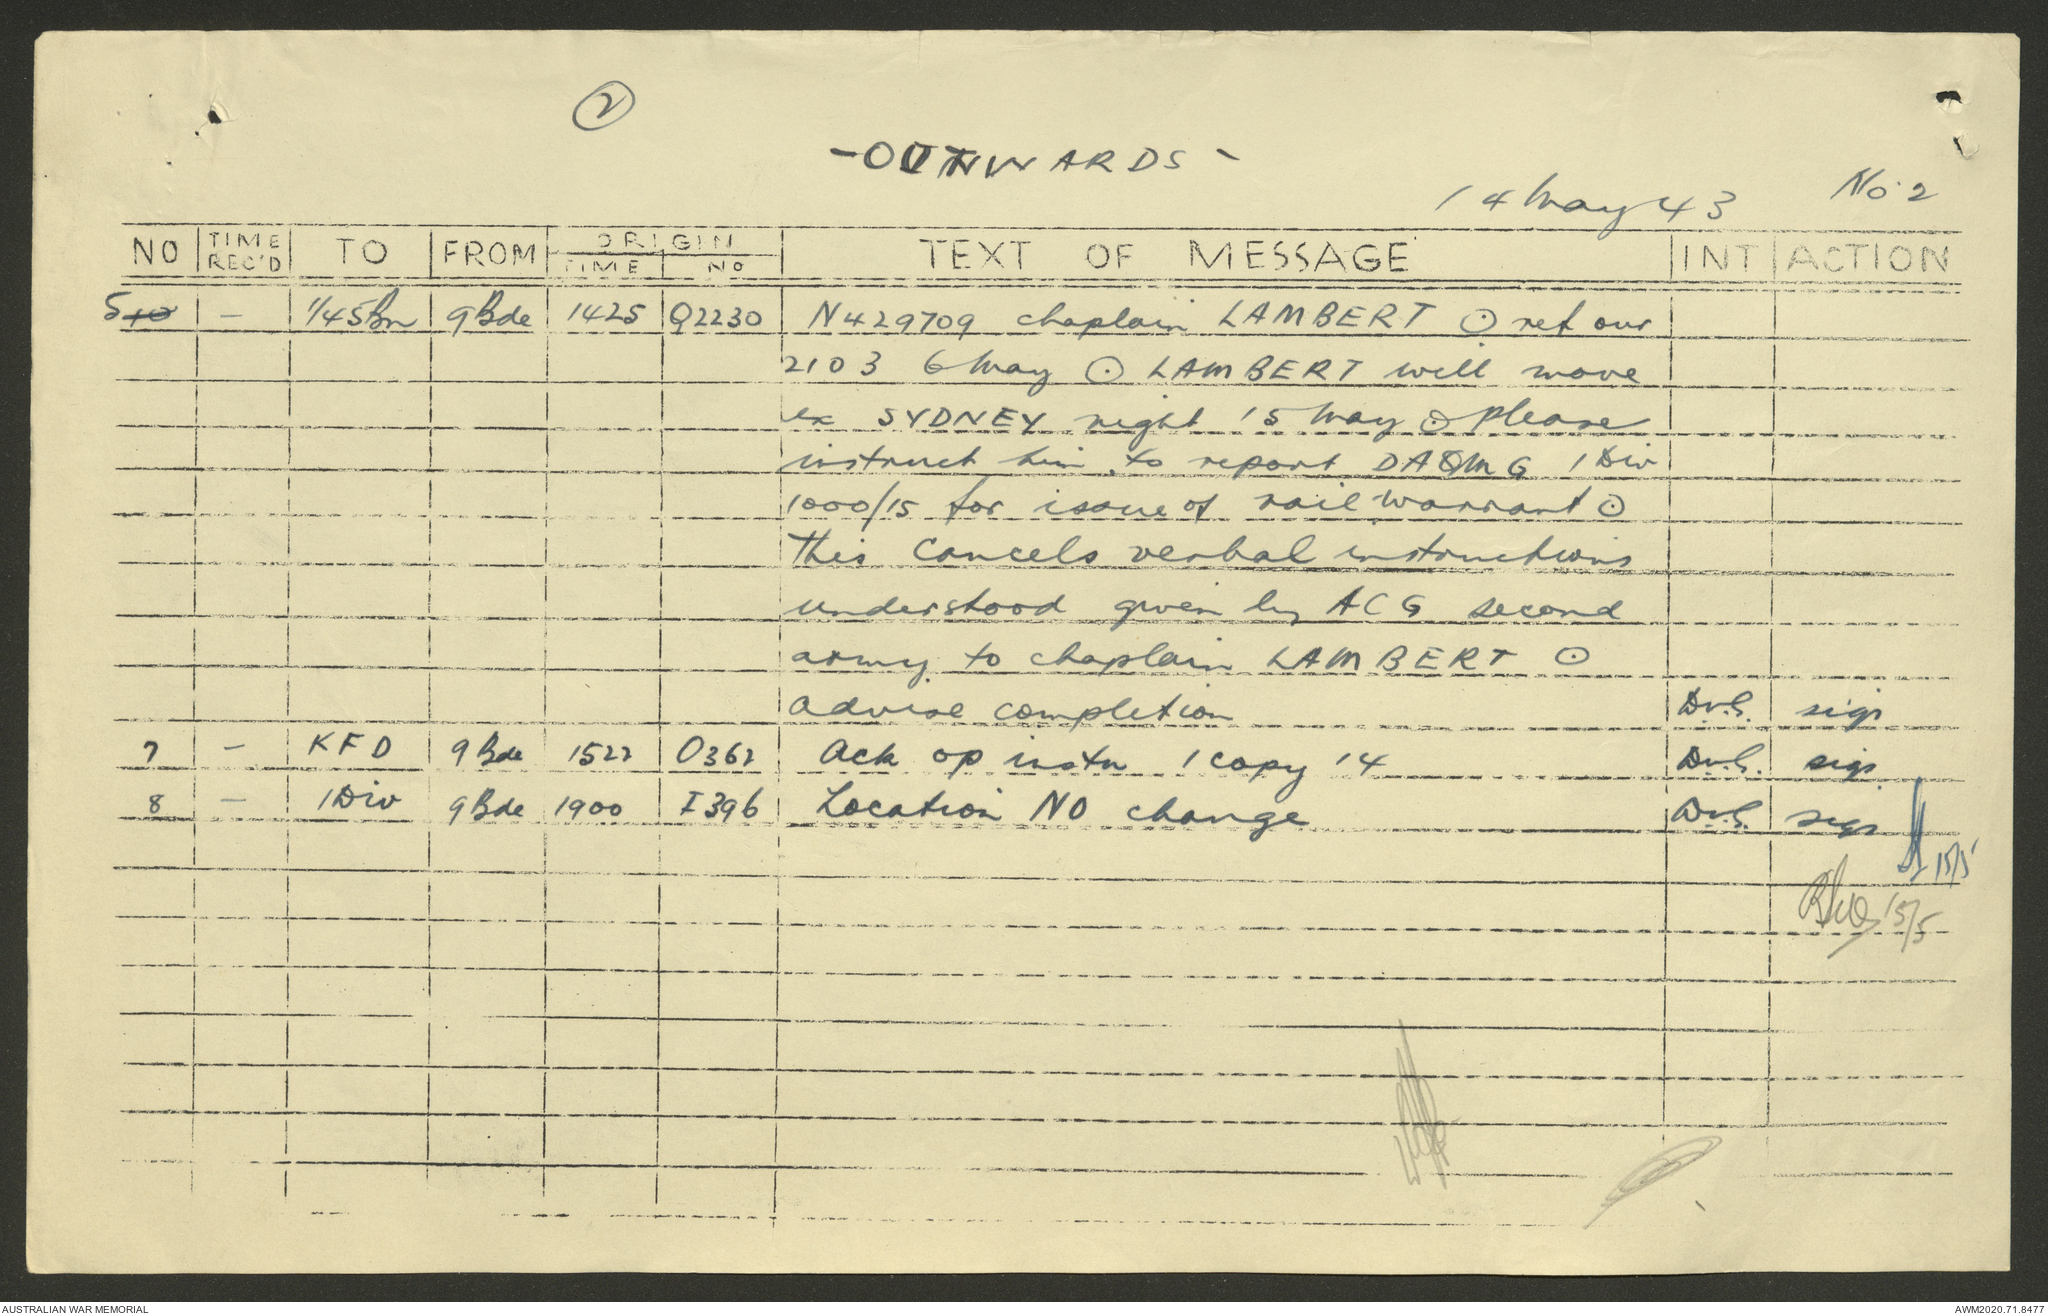 2
- OUTWARDS -
14 May 43 No 2
NO TIME REC'D TO FROM ORIGIN TIME NO TEXT OF MESSAGE INT ACTION
5 - 1/45 Bn 9 Bde 1425 Q2230 N429709 chaplain LAMBERT ⊙ ref our
2103 6 May ⊙ LAMBERT will move
ex SYDNEY night 15 May ⊙ please
instruct him to report DAQMG 1 Div
1000/15 for issue of rail warrant ⊙
This cancels verbal instructions
understood given by ACG second
army to chaplain LAMBERT ⊙
advise completion sigs
7 - KFD 9 Bde 1522 O362 Ack op instn 1 copy 14 sigs
8 - 1 Div 9 Bde 1900 I396 Location NO change sigs
15/5
15/5
AUSTRALIAN WAR MEMORIAL AWM2020.71.8477